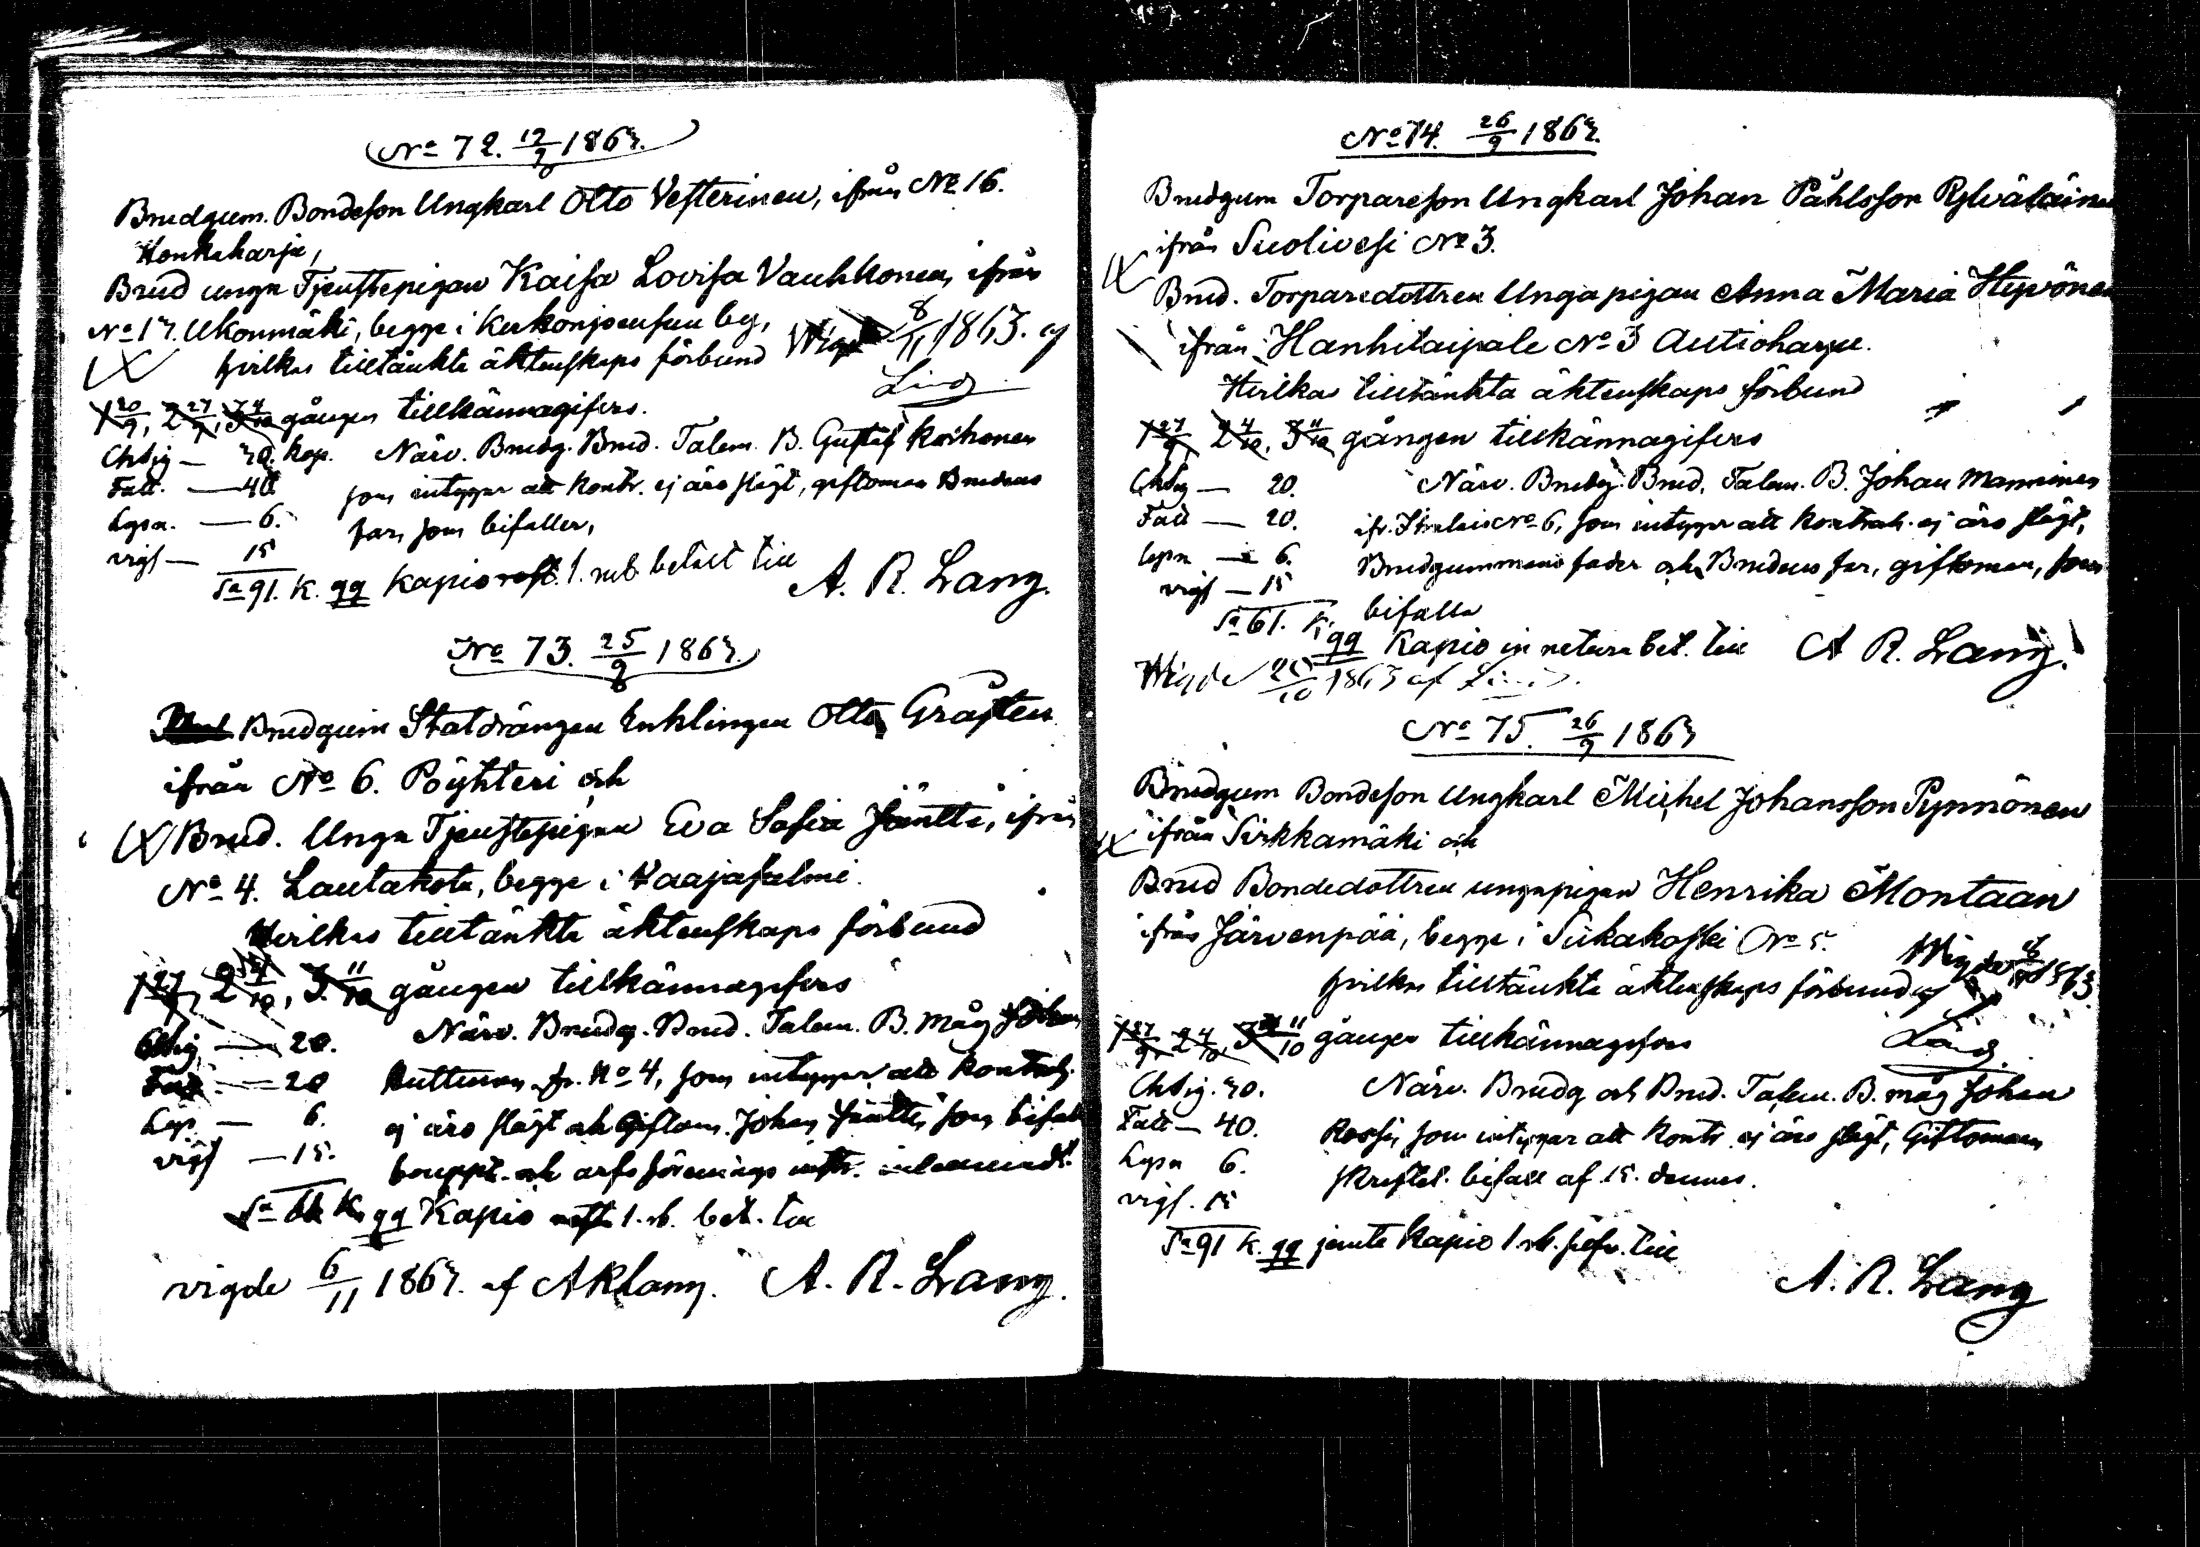 No 72. 17/9 1863.
Brudgum. Bondeson Ungkarl Otto Vesterinen, ifrån No 16.
Honkaharju,
Brud unga Tjenstepigan Kaisa Lovisa Vauhkonen, ifrån
No 17. Ukonmäki, begge i Kerkonjoensuu by,
hvilkas tilltänkta äktenskaps förbund Wigd 8/11 1863. af
Lind
1 20/9, 2 27/9, 3 4/10 gången tillkännagifvers.
Chtsig — 30. kop. Närv. Brudg. Brud. Talem. B. Gustaf Korhonen
Fatt. — 40 som intygar att kontr. ej äro slägt, giftoman Brudens
Lysn. — 6. far, som bifaller,
vigs — 15
Sa 91. K. qq Kapio 1. rub. betalt till A. R. Lang.
No 73. 25/9 1863.
Brudgum Statdrängen Enklingen Otto Gråsten
ifrån No 6. Pöyhteri och
Brud. Unga Tjenstepigan Eva Sofia Jäntti, ifrån
No 4. Lautakota, begge i Vaajasalmi.
Hvilkas tilltänkta äktenskaps förbund
1 27/9, 2 4/10, 3. 11/10 gången tillkännagifvers
Chtsig — 20. Närv. Brudg. Brud. Talem. B. måg Johan
Fatt. — 20 fr. No 4, som intygar att kontrah.
Lys — 6. ej äro slägt och Giftom. Johan Jäntti, som bifal
vigs — 15. bouppt. och arfs
Sa 61 K. qq Kapio 1. rb. bet. till
vigde 6/11 1863. af ARLang. A. R. Lang.
No 74. 26/9 1863.
Brudgum Torpareson Ungkarl Johan Påhlsson Rylväläinen
ifrån Suolivesi No 3.
Brud. Torparedottren Unga pigan Anna Maria Hyvönen
ifrån Hanhitaipale No 3 Autioharju.
Hvilkas tilltänkta äktenskaps förbund
1 27/9 2 4/10, 3 11/10 gången tillkännagifvers
Chtsig — 20. Närv. Brudg. Brud. Talem. B. Johan Manninen
Fatt — 20. No 6, som intygar att kontrah. ej äro slägt,
Lysn — 6. Brudgummens fader och Brudens far, giftoman, som
vigs — 15 bifalla
Sa 61. K. qq Kapio in natura bet. till A. R. Lang.
Wigde 25/10 1863 af Lind.
No 75. 26/9 1863
Brudgum Bondeson Ungkarl Michel Johansson Pynnönen
ifrån Sirkkamäki och
Brud Bondedottren unga pigan Henrika Montaan
ifrån Järvenpää, begge i Siikakoski No 5.
Wigde 1863
hvilkas tilltänkta äktenskaps förbund af
Lind.
1 27/9, 2 4/10, 3 11/10 gången tillkännagifvers
Chtsig. 30. Närv. Brudg och Brud. Talem. B. måg Johan
Fatt — 40. Rossi, som intygar att kontr. ej äro slägt, Giftomans
Lysn 6. skriftel. bifall af 15. dennes.
vigs. 15
Sa 91 K. qq jemte Kapio 1. rb. till
A. R. Lang